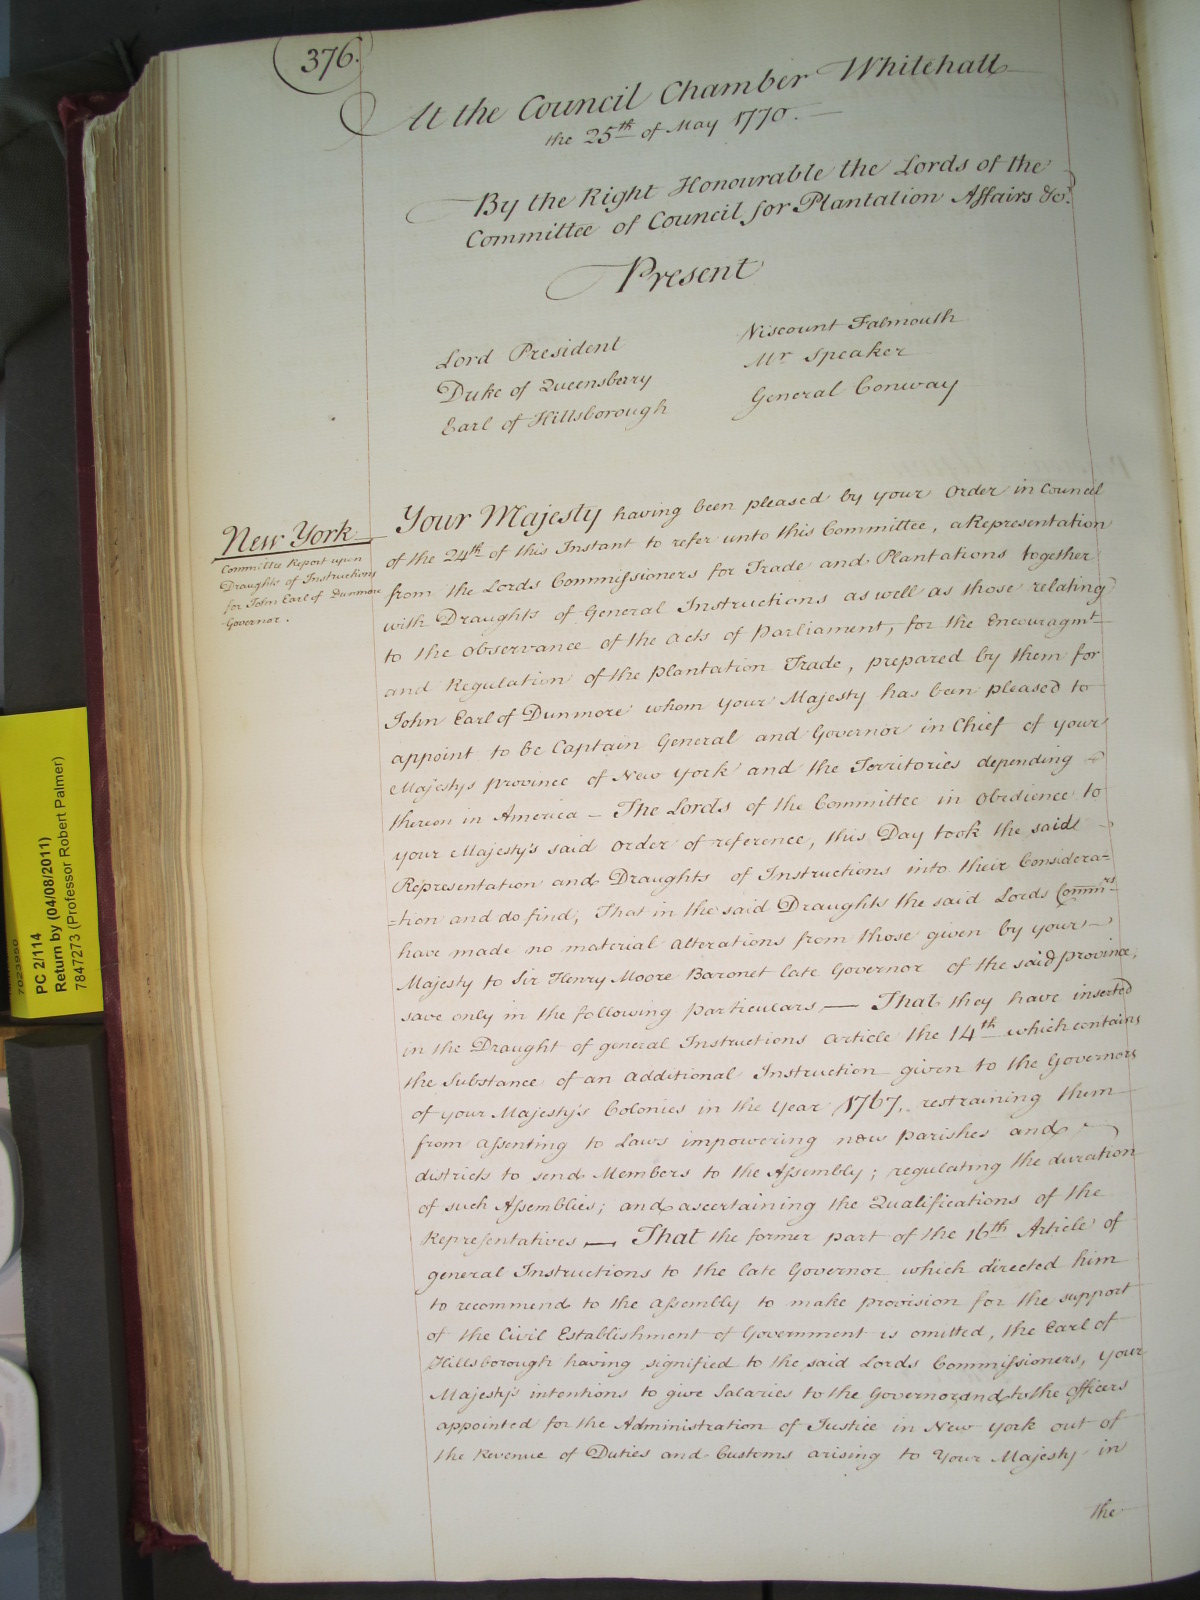 376.
At the Council Chamber Whitehall
the 25th of May 1770.
By the Right Honourable the Lords of the
Committee of Council for Plantation Affairs &c.
Present
Lord President
Duke of Queensberry
Earl of Hillsborough
Viscount Falmouth
Mr Speaker
General Conway
New York
Committee Report upon
Draughts of Instructions
for John Earl of Dunmore
Governor.
Your Majesty having been pleased by your Order in Council
of the 24th of this Instant to refer unto this Committee, a Representation
from the Lords Commissioners for Trade and Plantations together
with Draughts of General Instructions as well as those relating
to the observance of the Acts of Parliament, for the Encouragmt
and Regulation of the Plantation Trade, prepared by them for
John Earl of Dunmore whom your Majesty has been pleased to
appoint to be Captain General and Governor in Chief of your
Majestys province of New York and the Territories depending
thereon in America – The Lords of the Committee in Obedience to
your Majesty's said Order of reference, this Day took the said
Representation and Draughts of Instructions into their Considera=
=tion and do find, That in the said Draughts the said Lords Commrs
have made no material alterations from those given by your
Majesty to Sir Henry Moore Baronet late Governor of the said province,
save only in the following particulars — That they have inserted
in the Draught of general Instructions Article the 14th which contains
the Substance of an additional Instruction given to the Governors
of your Majesty's Colonies in the Year 1767, restraining them
from assenting to Laws impowering new parishes and
districts to send Members to the Assembly; regulating the duration
of such Assemblies; and ascertaining the Qualifications of the
Representatives — That the former part of the 16th Article of
general Instructions to the late Governor which directed him
to recommend to the Assembly to make provision for the support
of the Civil Establishment of Government is omitted, the Earl of
Hillsborough having signified to the said Lords Commissioners, your
Majesty's intentions to give Salaries to the Governor and to the Officers
appointed for the Administration of Justice in New York out of
the Revenue of Duties and Customs arising to Your Majesty in
the
7023950
PC 2/114
Return by (04/08/2011)
7847273 (Professor Robert Palmer)